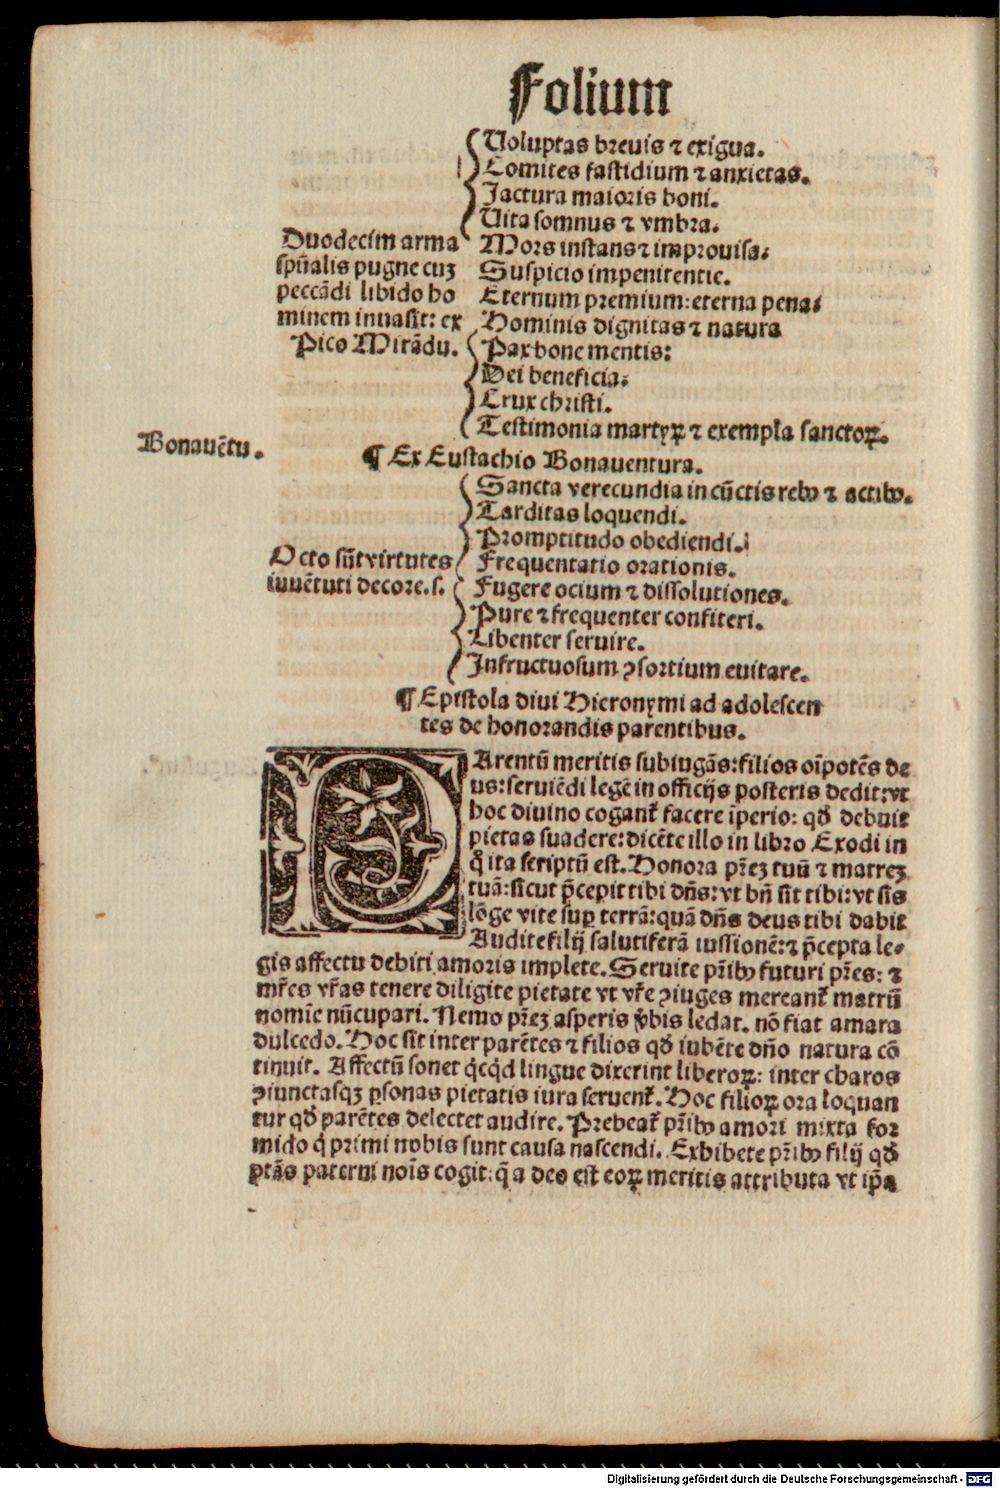 Folium
Voluptas breuis ⁊ exigua.
Comites fastidium ⁊ anxietas.
Jactura maioris boni.
Uita somnus ⁊ vmbra.
Duodecim arma
spūalis pugne cuꝫ
peccādi libido ho
minem inuasit: ex
Pico Mirādu.
Mors instans ⁊ improuisa:
Suspicio impenitentie.
Eternum premium: eterna pena:
Hominis dignitas ⁊ natura
Pax bone mentis:
Dei beneficia:
Crux christi.
Testimonia martyꝝ ⁊ exempla sanctoꝝ.
Bonauētu.
¶ Ex Eustachio Bonauentura.
Sancta verecundia in cūctis rebꝰ ⁊ actibꝰ.
Tarditas loquendi.
Promptitudo obediendi.
Octo sūt virtutes
iuuētuti decore.s.
Frequentatio orationis.
Fugere ocium ⁊ dissolutiones.
Pure ⁊ frequenter confiteri.
Libenter seruire.
Infructuosum ꝯsortium euitare.
¶ Epistola diui Hieronymi ad adolescen
tes de honorandis parentibus.
PArentū meritis subiugās: filios oīpotēs de
us: seruiēdi legē in officijs posteris dedit: vt
hoc diuino cogant᷑ facere īperio: qđ debuit
pietas suadere: dicēte illo in libro Exodi in
q̄ ita scriptū est. Honora pr̄eꝫ tuū ⁊ matreꝫ
tuā: sicut p̄cepit tibi dn̄s: vt bn̄ sit tibi: vt sis
lōge vite suꝑ terrā: quā dn̄s deus tibi dabit
Audite filij salutiferā iussionē: ⁊ p̄cepta le-
gis affectu debiti amoris implete. Seruite pr̄ibꝰ futuri pr̄es: ⁊
mr̄es vr̄as tenere diligite pietate vt vr̄e ꝯiuges mereant᷑ matrū
nomīe nūcupari. Nemo pr̄eꝫ asperis v̄bis ledat. nō fiat amara
dulcedo. Hoc sit inter parētes ⁊ filios qđ iubēte dn̄o natura cō
tinuit. Affectū sonet q̇cq̇d lingue dixerint liberoꝝ: inter charos
ꝯiunctasqꝫ ꝑsonas pietatis iura seruent᷑. Hoc filioꝝ ora loquan
tur qđ parētes delectet audire. Prebeat᷑ pr̄ibꝰ amori mixta for
mido q̇ primi nobis sunt causa nascendi. Exhibete pr̄ibꝰ filij qđ
ptās paterni noīs cogit: q̄ a deo est eoꝝ meritis attributa vt ip̄a
Digitalisierung gefördert durch die Deutsche Forschungsgemeinschaft - DFG